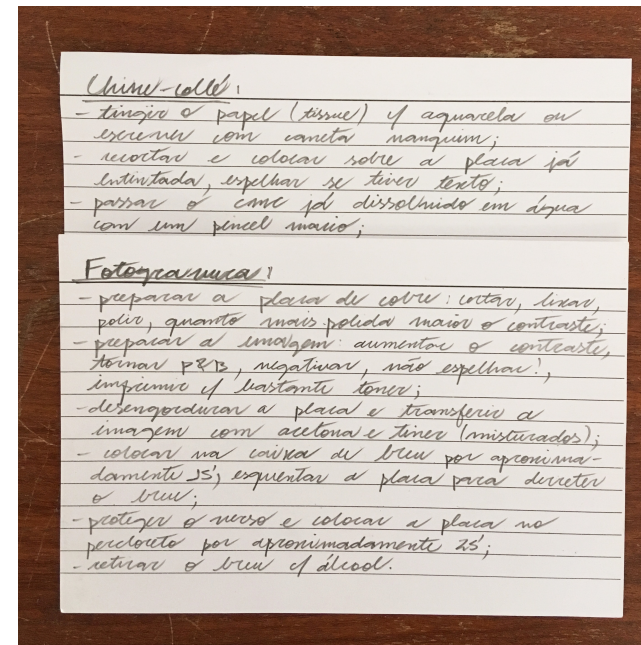 Chine-collé:
- tingir o papel (tissue) c/ aquarela ou
escrever com caneta nanquim;
- recortar e colocar sobre a placa já
entintada, espelhar se tiver texto;
- passar o cmc já dissolvido em água
com um pincel macio;
Fotogravura:
- preparar a placa de cobre: cortar, lixar,
polir, quanto mais polida maior o contraste;
- preparar a imagem: aumentar o contraste,
tornar P&B, negativar, não espelhar!,
imprimir c/ bastante toner;
- desengordurar a placa e transferir a
imagem com acetona e tiner (misturados);
- colocar na caixa de breu por aproxima-
damente 25'; esquentar a placa para derreter
o breu;
- proteger o verso e colocar a placa no
percloreto por aproximadamente 25';
- retirar o breu c/ álcool.